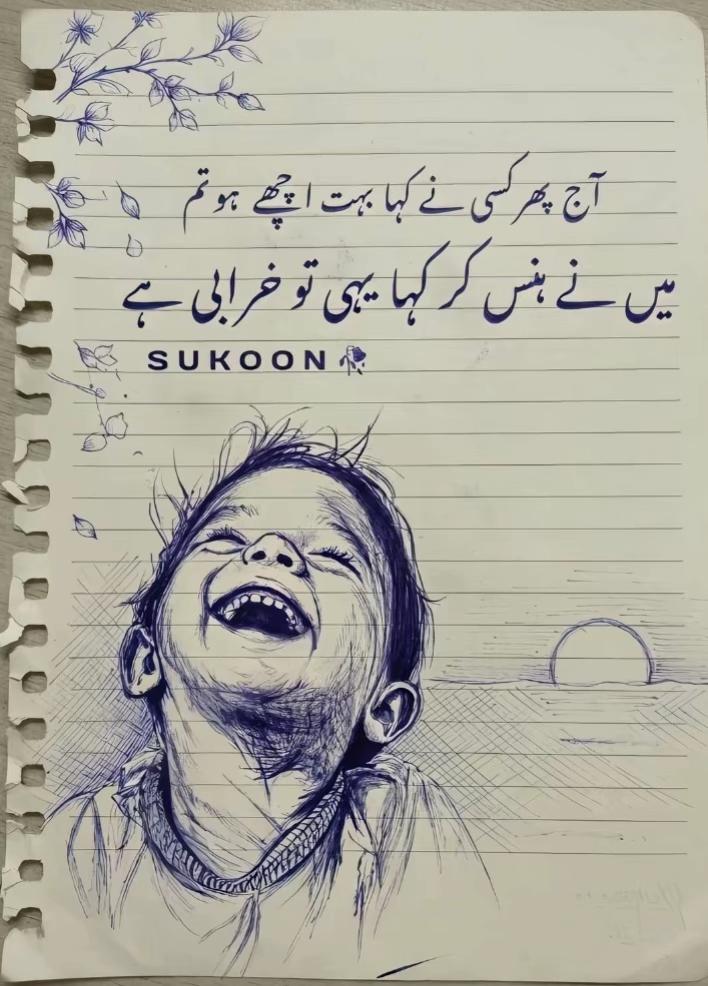 آج پھر کسی نے کہا بہت اچھے ہو تم
میں نے ہنس کر کہا یہی تو خرابی ہے
SUKOON🥀